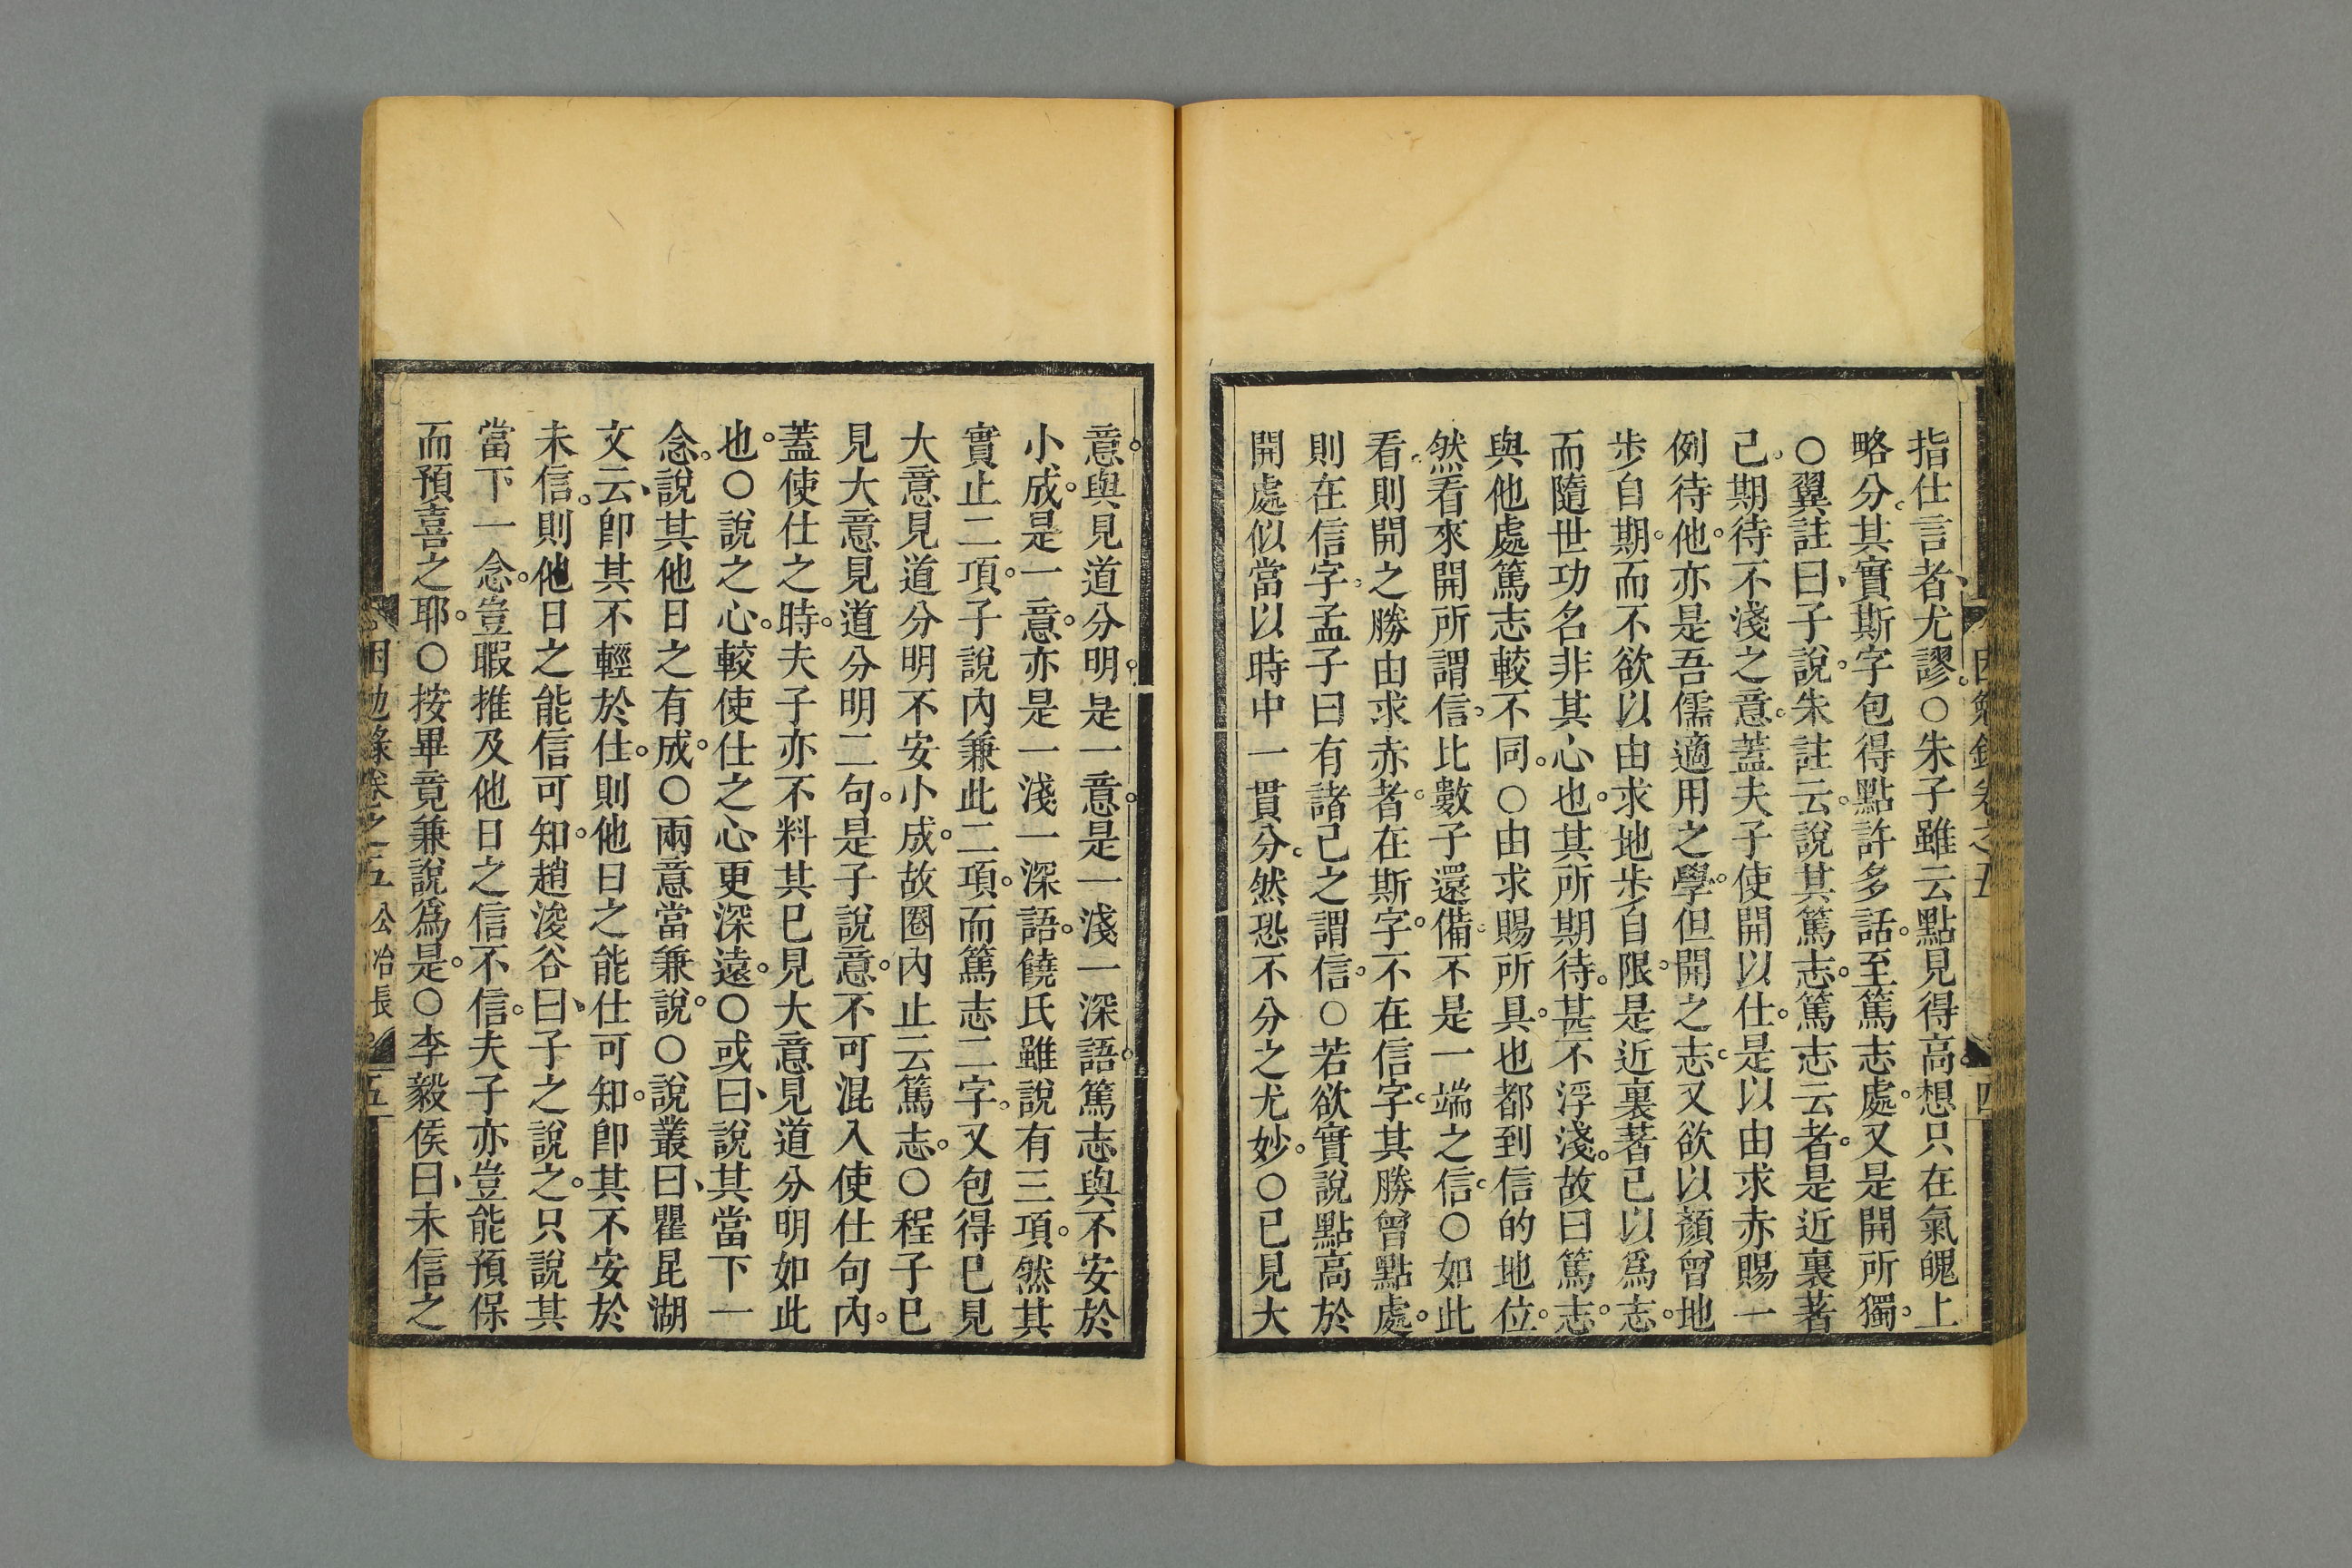 指仕言者、尤謬。○朱子雖云點見得高。想只在氣魄上
略分。其實斯字包得點許多話。至篤志處。又是開所獨。
○翼註曰、子說。朱註云。說其篤志。篤志云者。是近裏著
己。期待不淺之意。蓋夫子使開以仕。是以由求赤賜一
例待他。亦是吾儒適用之學。但開之志。又欲以顏曾地
步自期。而不欲以由求地步自限。是近裏著己以爲志。
而隨世功名非其心也。其所期待。甚不浮淺。故曰篤志。
與他處篤志較不同。○由求賜所具。也都到信的地位。
然看來開所謂信。比數子還備。不是一端之信。○如此
看。則開之勝由求赤者。在斯字。不在信字。其勝曾點處。
則在信字。孟子曰有諸己之謂信。○若欲實說點高於
開處。似當以時中一貫分。然恐不分之尤妙。○已見大
因勉錄卷之五 四
意。與見道分明。是一意。是一淺一深語。篤志與不安於
小成。是一意。亦是一淺一深語。饒氏雖說有三項。然其
實止二項。子說內兼此二項。而篤志二字。又包得已見
大意見道分明不安小成。故圈內止云篤志。○程子已
見大意見道分明二句。是子說意。不可混入使仕句內。
蓋使仕之時。夫子亦不料其已見大意見道分明如此
也。○說之心。較使仕之心更深遠。○或曰、說其當下一
念。說其他日之有成。○兩意當兼說。○說叢曰、瞿昆湖
文云、卽其不輕於仕。則他日之能仕可知。卽其不安於
未信。則他日之能信可知。趙浚谷曰、子之說之。只說其
當下一念。豈暇推及他日之信不信。夫子亦豈能預保
而預喜之耶。○按畢竟兼說爲是。○李毅侯曰、未信之
困勉錄卷之五 公冶長 五